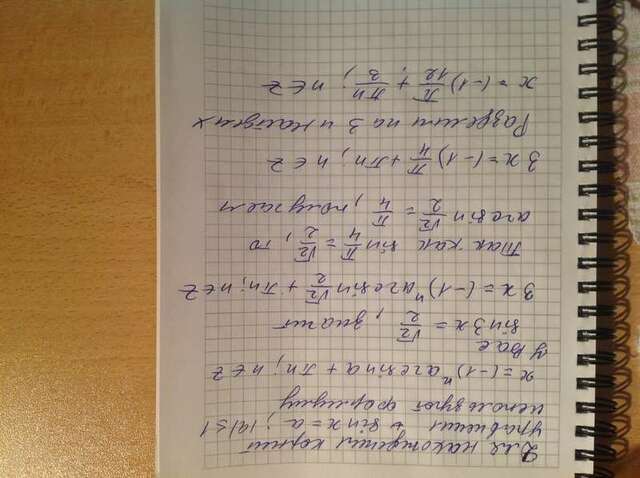 Для нахождения корней
уравнения sin x = a ; |a| ≤ 1
используют формулу
x = (-1)ⁿ arcsin a + πn; n ∈ Z
У Вас
sin 3x = √2/2 , значит
3x = (-1)ⁿ arcsin √2/2 + πn; n ∈ Z
Так как sin π/4 = √2/2, то
arcsin √2/2 = π/4 , получаем
3x = (-1) π/4 + πn; n ∈ Z
Разделим на 3 и найдем x
x = (-1) π/12 + πn/3; n ∈ Z